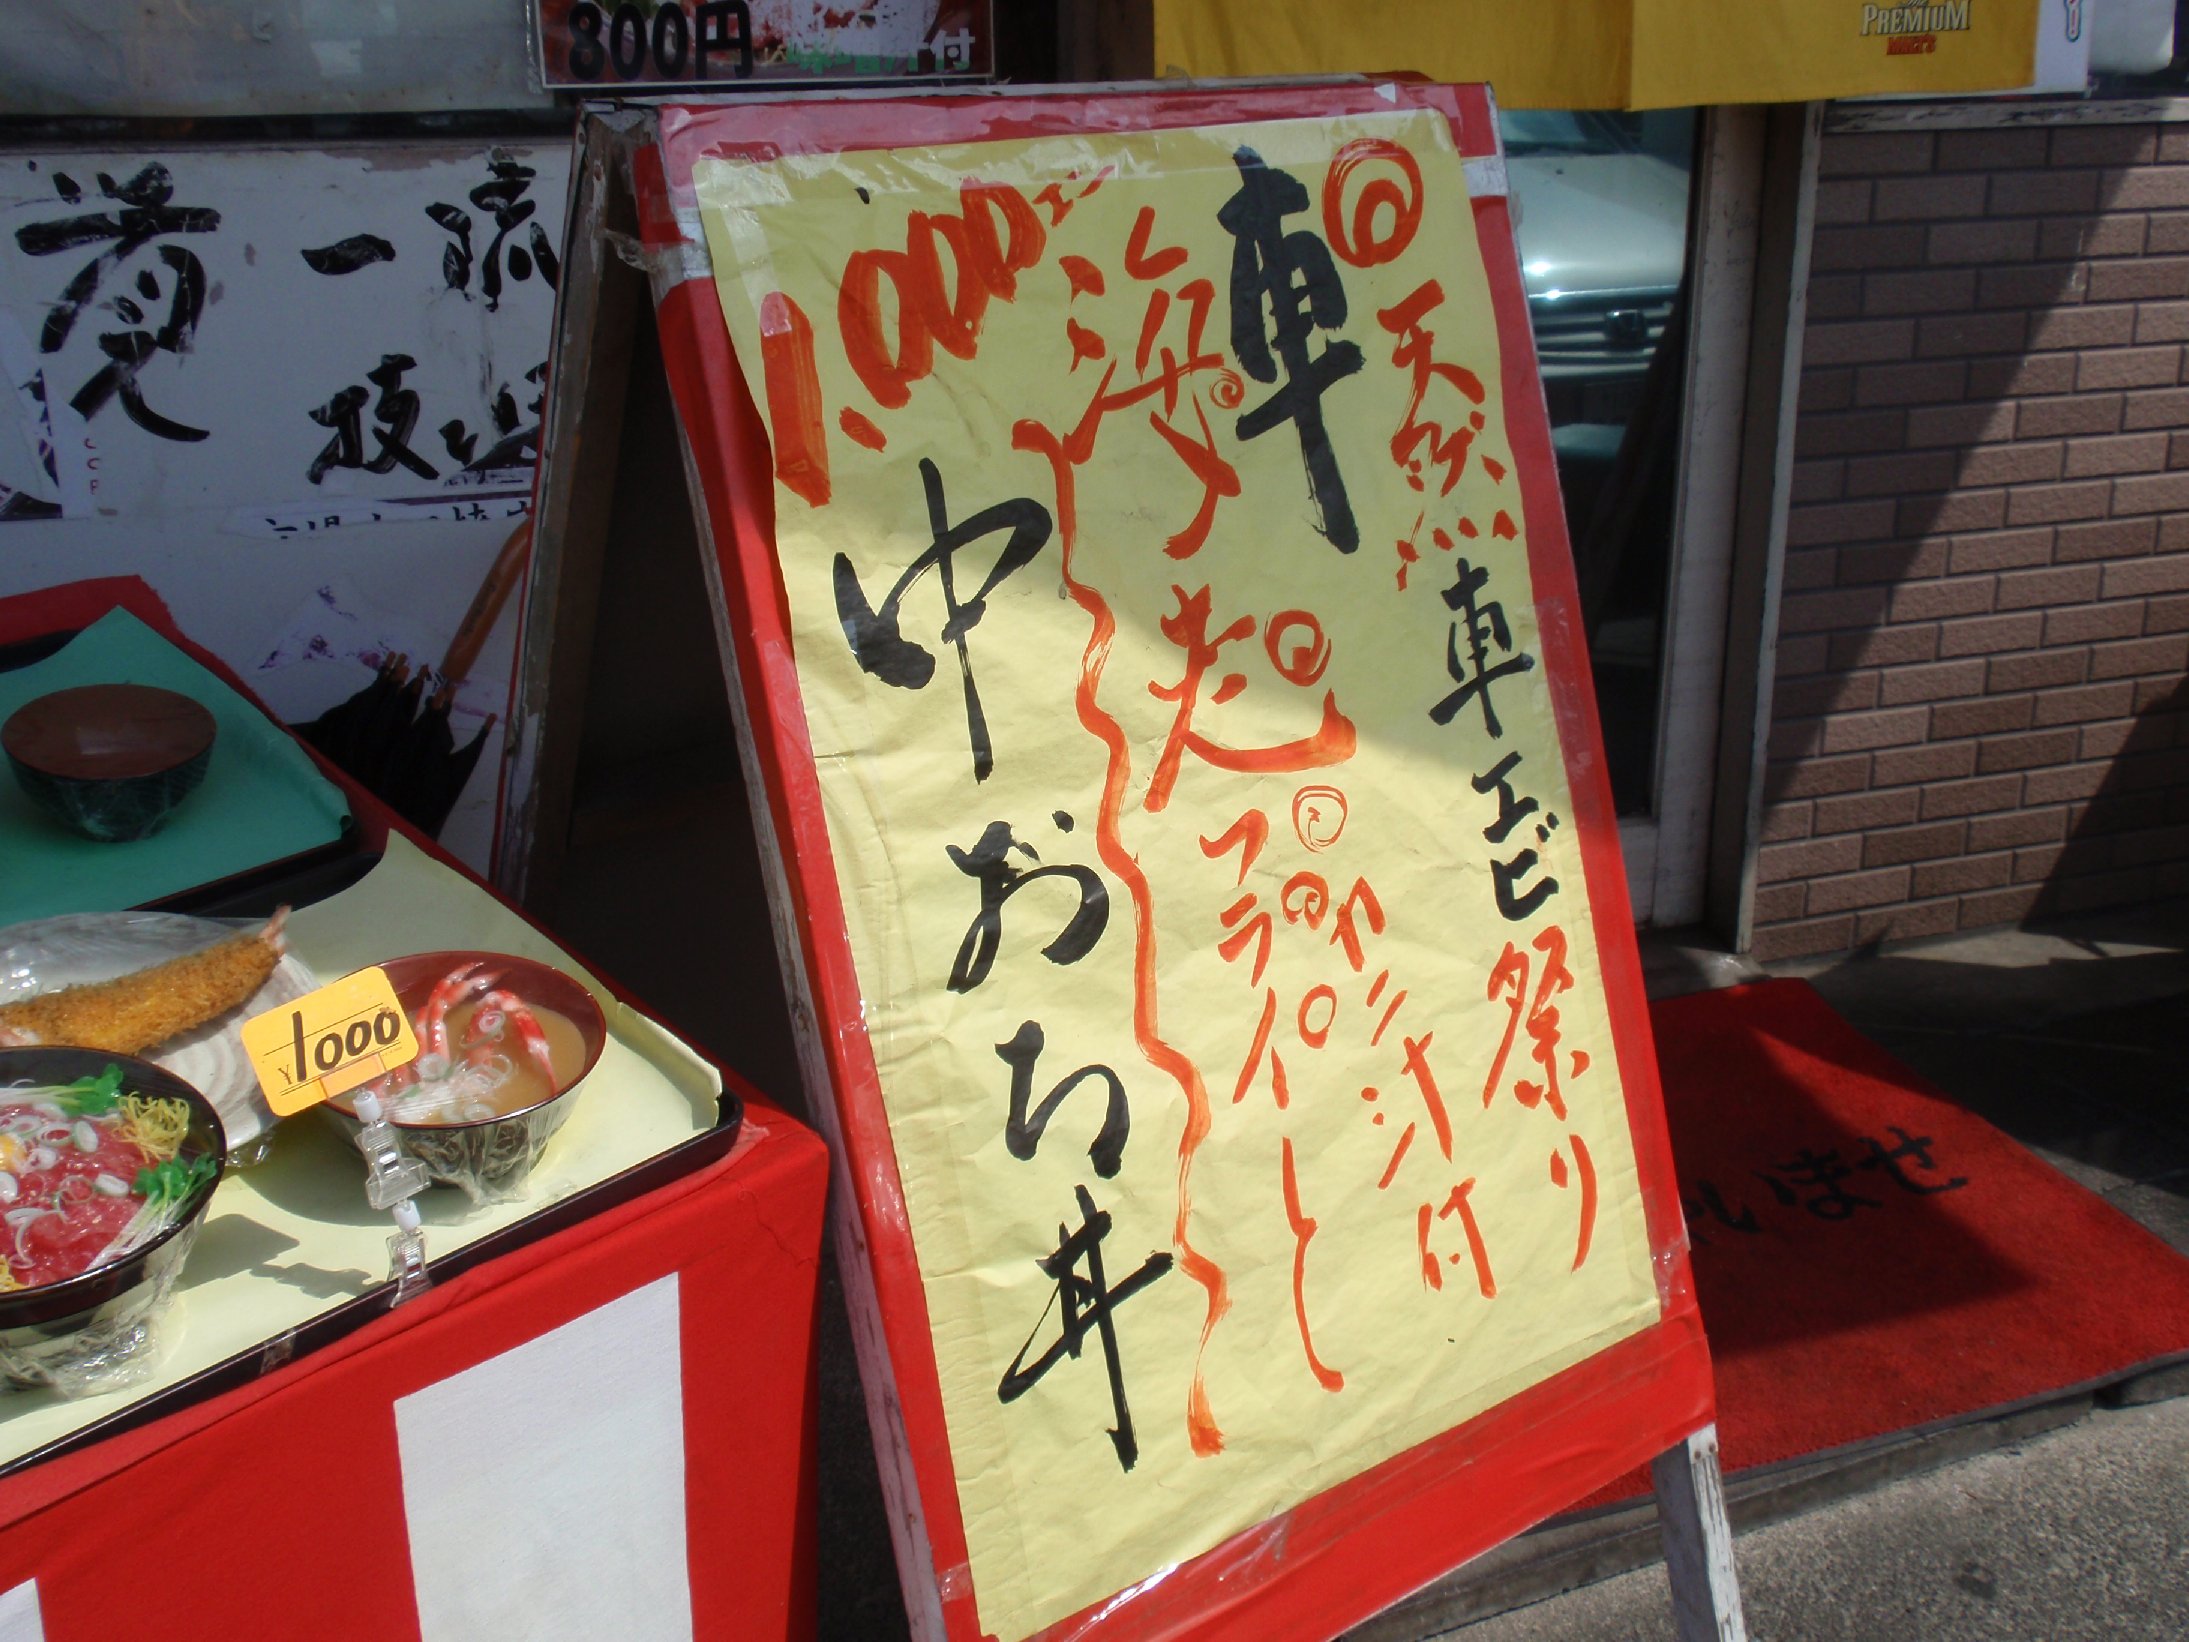 800円
味噌汁付
PREMIUM
MALT'S
一流
技
天然車エビ祭り
車海老フライと
カニ汁付
中おち丼
1,000エン
¥1000
いませ